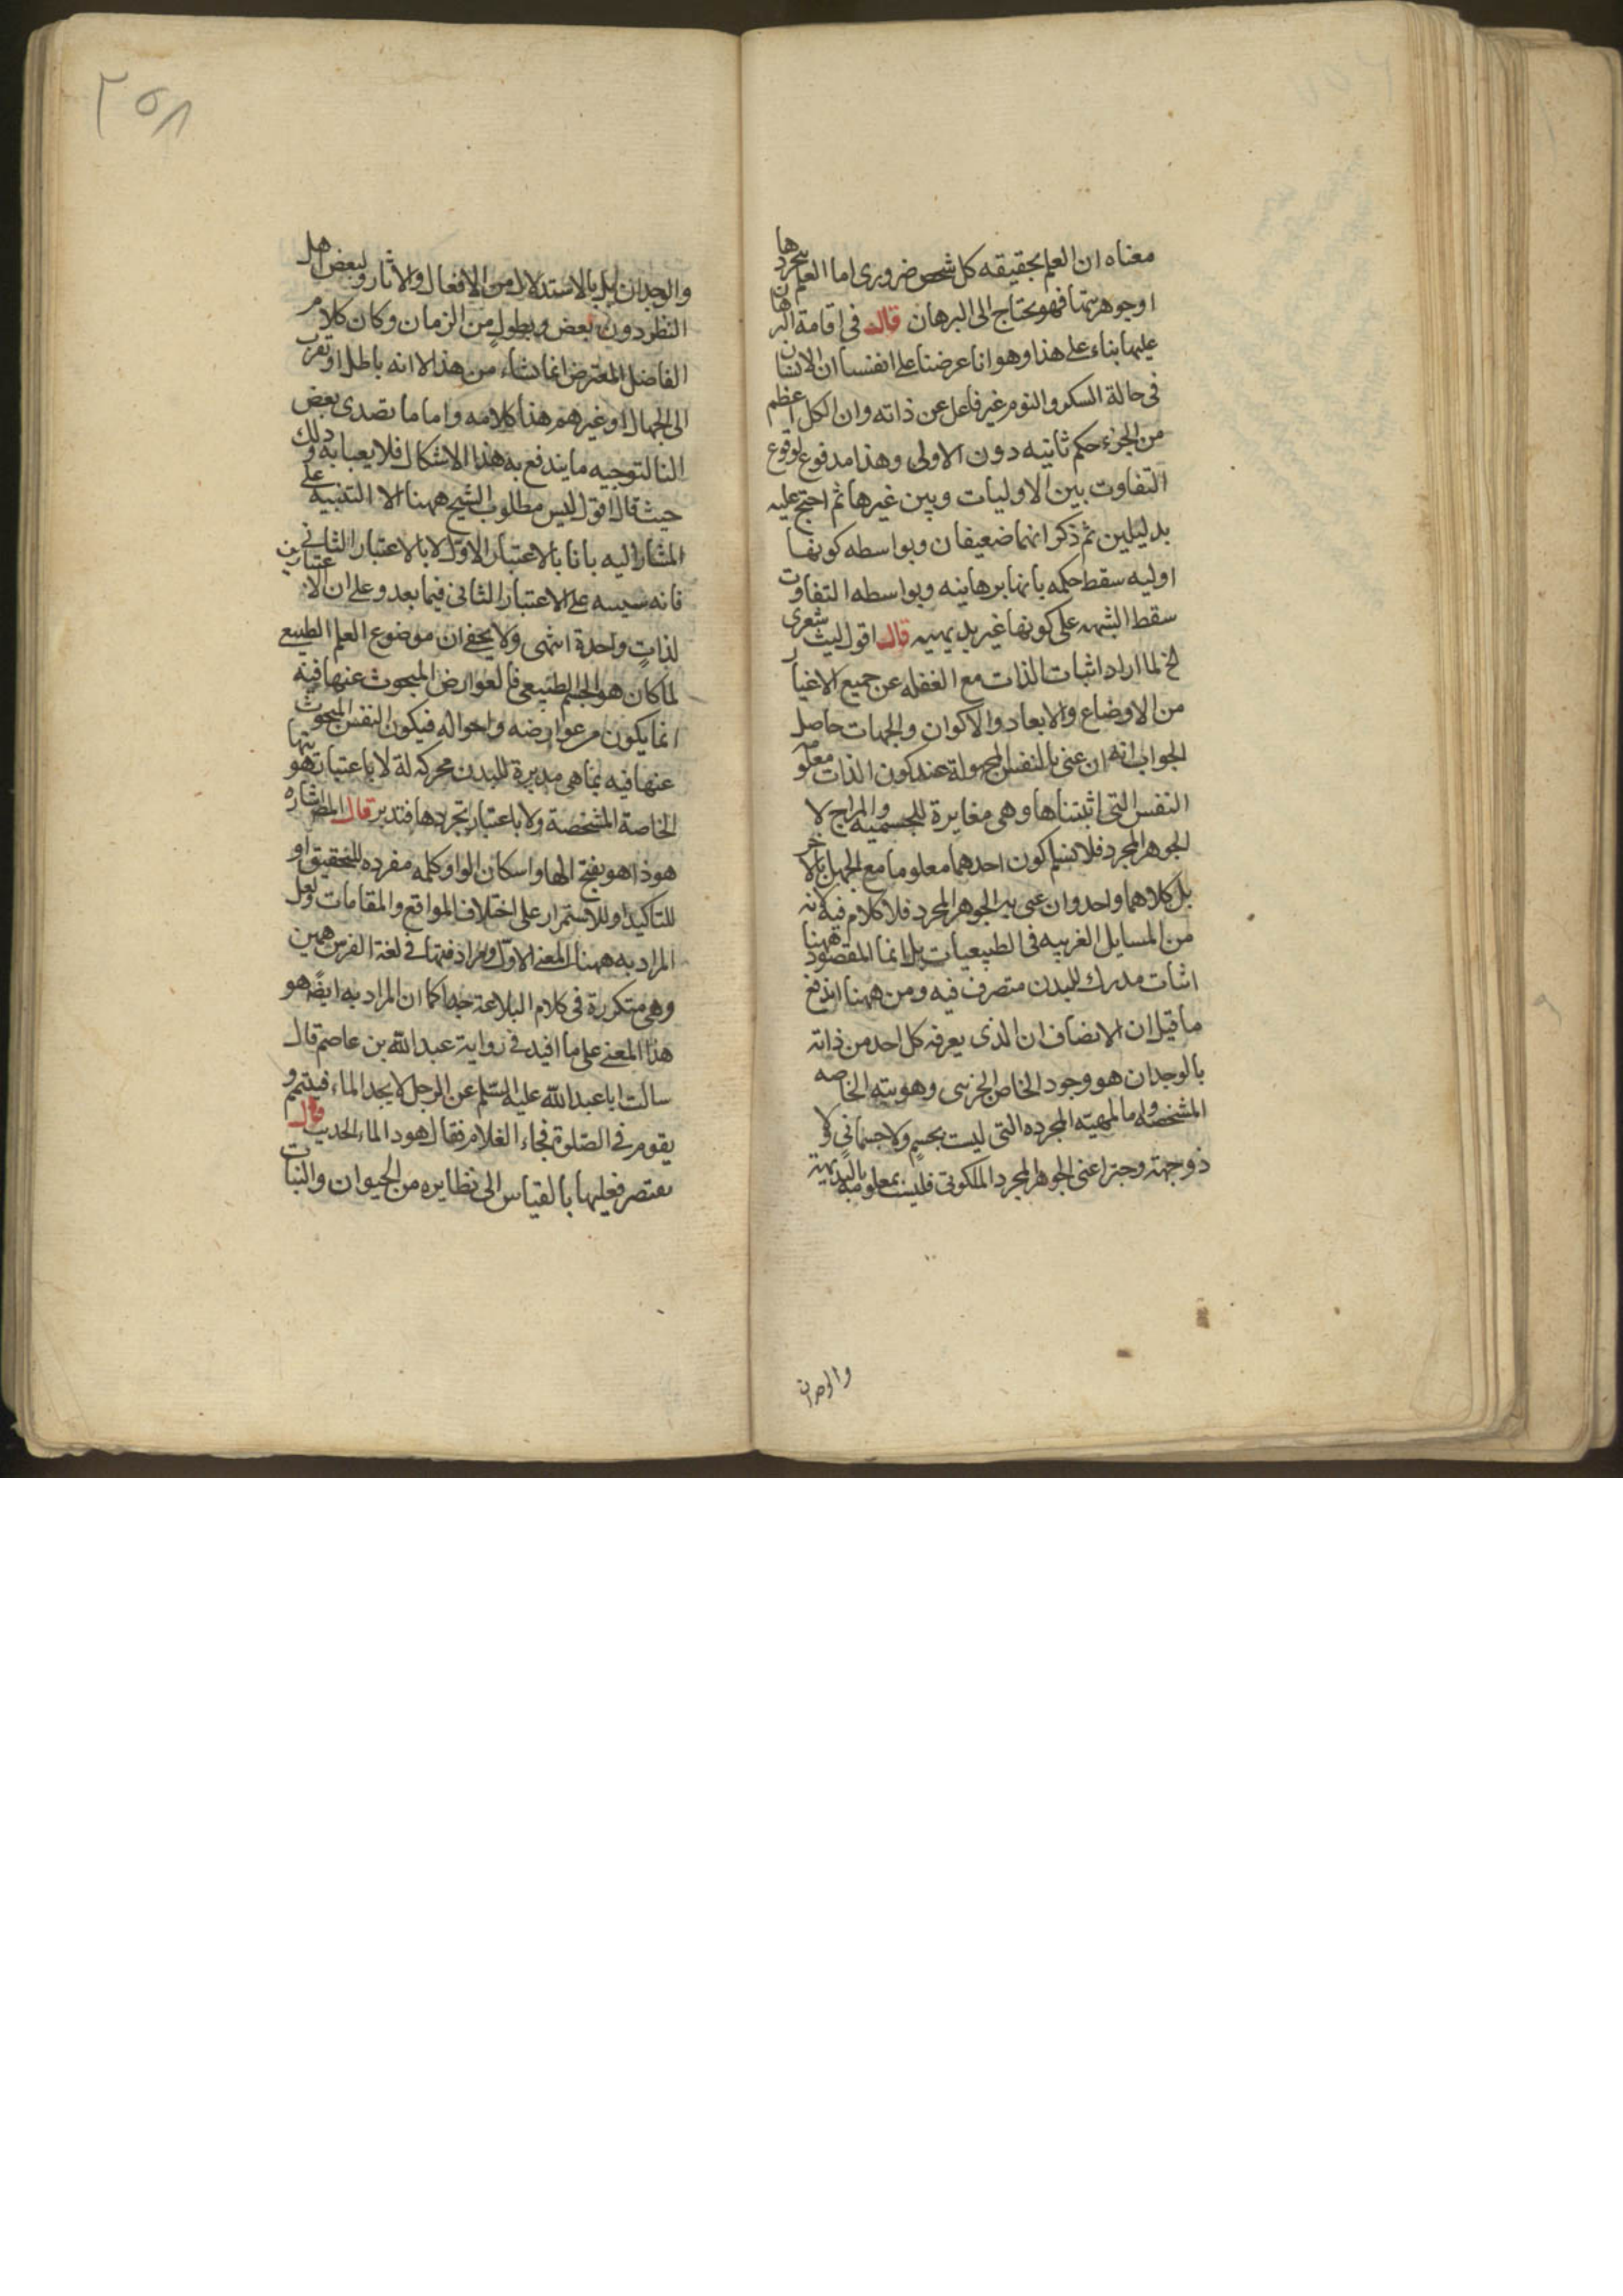 معناه ان العلم بحقيقه كل شخص ضروری اما العلم بتجردها
او جوهريتها فهو يحتاج الی البرهان قال فی اقامة البرهان
عليها بناء علی هذا وهو انا عرضنا علی انفسنا ان الانسان
فی حالة السكر والنوم غير غافل عن ذاته وان الكل اعظم
من الجزء حكم ثانيه دون الاولی وهذا مدفوع لوقوع
التفاوت بين الاوليات وبين غيرها ثم احتج عليه
بدليلين ثم ذكر انهما ضعيفان وبواسطه كونها
اوليه سقط حكمه بانها برهانيه وبواسطه التفاوت
سقط الشبهه علی كونها غير بديهيه قال اقول ليت شعری
لخ لما اراد اثبات الذات مع الغفله عن جميع الاغيار
من الاوضاع والابعاد والاكوان والجهات حاصل
الجواب انه ان عنی بالنفس المجهولة عند كون الذات معلوم
النفس التی اثبتناها وهی مغايرة للجسميه والمزاج لا
الجوهر المجرد فلا نسلم كون احدهما معلوما مع الجهل بالاخر
بل كلاهما واحد وان عنی به الجوهر المجرد فلا كلام فيه لانه
من المسايل الغريبه فی الطبيعيات بل انما المقصود ههنا
اثبات مدرك للبدن متصرف فيه ومن ههنا اندفع
ما قيل ان الانصاف ان الذی يعرفه كل احد من ذاته
بالوجدان هو وجود الخاص الجزئی وهويته الخاصه
المشخصه وله ما لمهيته المجرده التی ليست بجسم ولا جسمانی ولا
ذو جهة وحيز اعنی الجوهر المجرد الملكوتی فليست بمعلومه بالبديهة
والوجدان
٢٥٨
والوجدان بل بالاستدلال من الافعال والاثار ولبعض اهل
النظر دون بعض وبطول من الزمان وكان كلام
الفاضل المعترض انما نشاء من هذا الا انه باطل او تقرب
الی الجهال او غيرهم هذا كلامه واما ما تصدی بعض
التوجيه ما يندفع به هذا الاشكال فلا يعبا به وذلك
حيث قال اقول ليس مطلوب الشيخ ههنا الا التنبيه علی
المشار اليه بانا بالاعتبار الاول لا بالاعتبار الثانی
فانه سينبه علی الاعتبار الثانی فيما بعد وعلی ان الاعتبارين
لذات واحدة انتهی ولا يخفی ان موضوع العلم الطبيعی
لما كان هو الجسم الطبيعی فالعوارض المبحوث عنها فيه
انما يكون من عوارضه واحواله فيكون النفس المبحوث
عنها فيه بما هی مدبرة للبدن محركه له لا باعتبار هويتها
الخاصة المشخصة ولا باعتبار تجردها فتدبر قال المص اشاره
هو ذا هو بفتح الها واسكان الواو كلمه مفرده للتحقيق او
للتاكيد او للاستمرار علی اختلاف المواقع والمقامات ولعل
المراد به ههنا المعنی الاول ومرادفتها فی لغة الفرس همين
وهی متكررة فی كلام البلاغة جدا كما ان المراد به ايضً هو
هذا المعنی علی ما افيد فی رواية عبد الله بن عاصم قال
سالت ابا عبد الله عليه السلم عن الرجل لا يجد الماء فيتيمم و
يقوم فی الصلوة فجاء الغلام فقال هود الماء الحديث قال
فعليها بالقياس الی نظايره من الحيوان والنبات